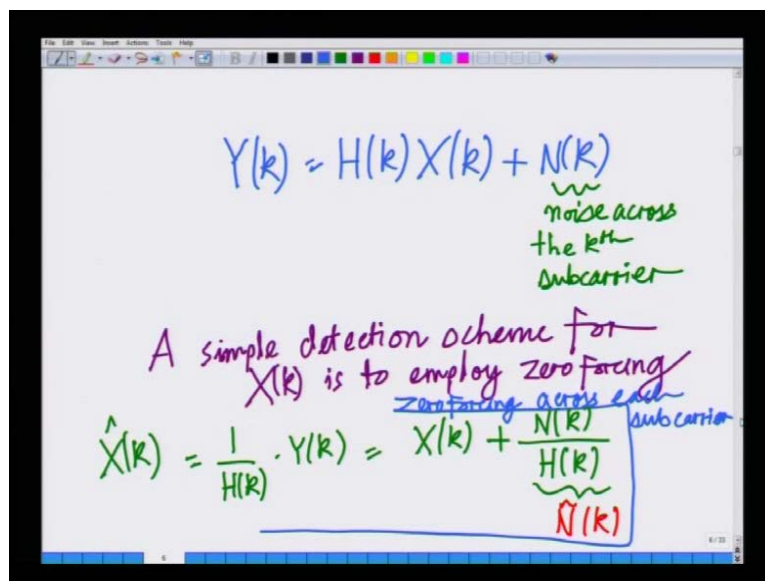 File Edit View Insert Actions Tools Help
Y(k) = H(k) X(k) + N(k)
noise across
the kth
subcarrier
A simple detection scheme for
X(k) is to employ zero forcing
zero forcing across each
subcarrier
X̂(k) = 1/H(k) · Y(k) = X(k) + N(k)/H(k)
Ñ(k)
6